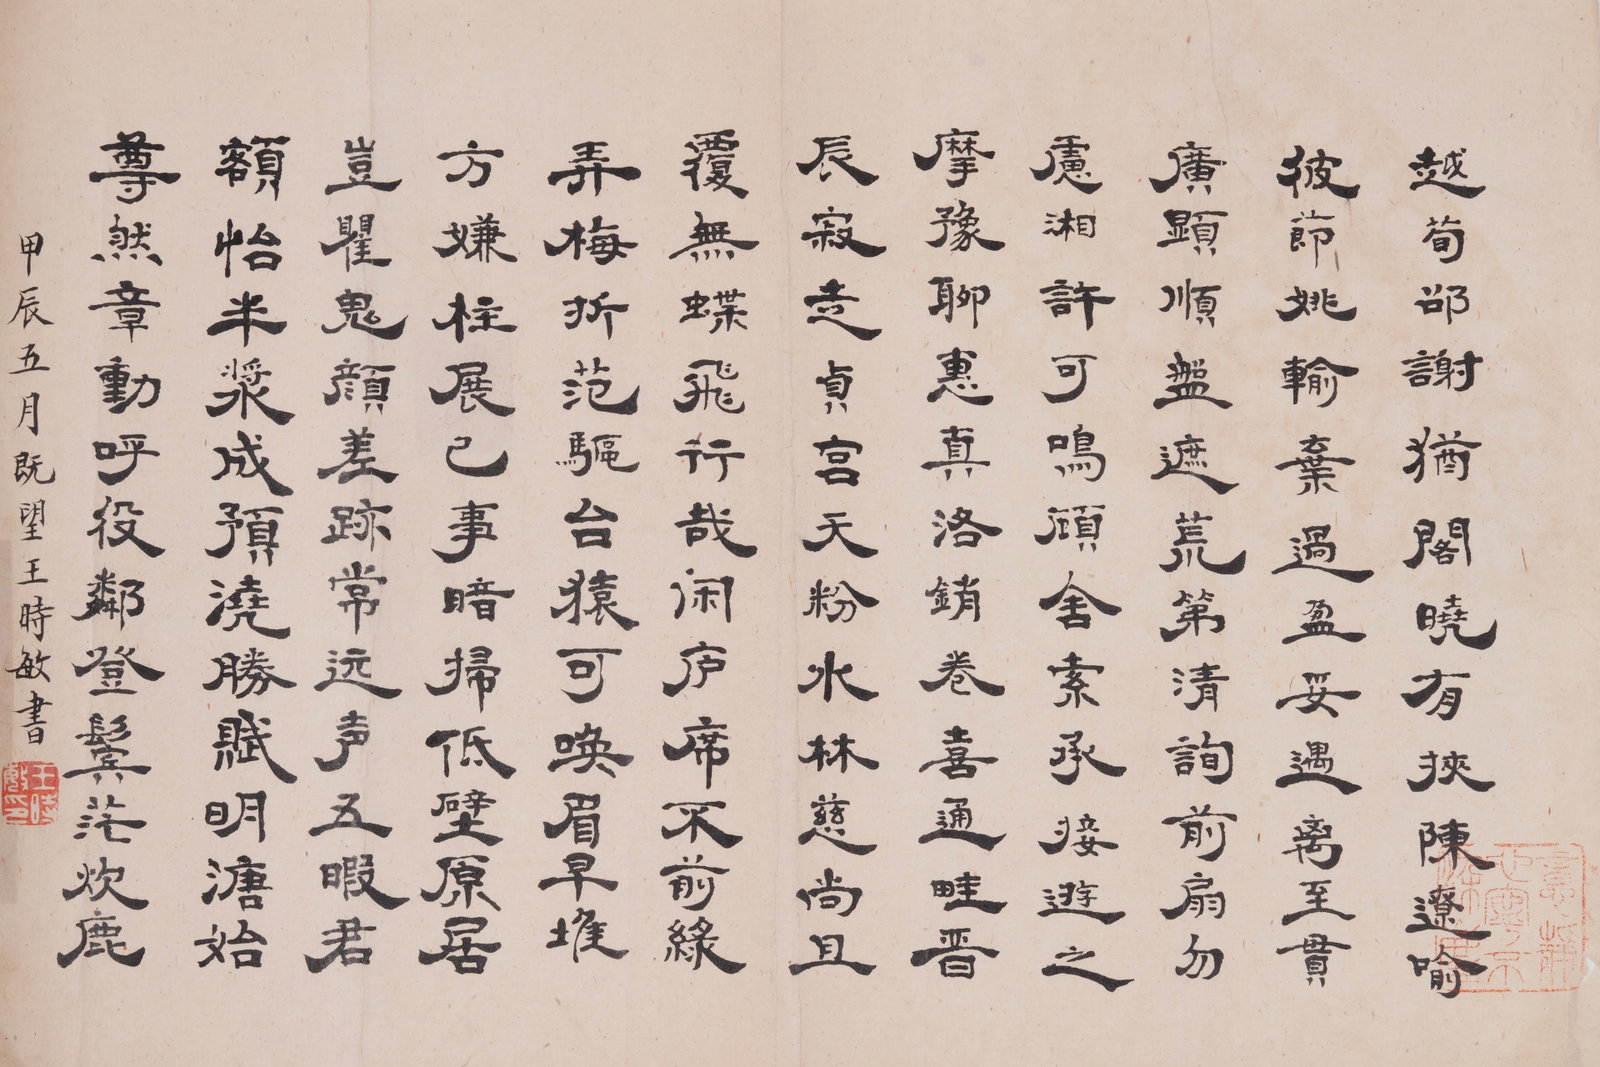 越荀邵謝猶閣曉有狹陳遼喻
彼節姚輸棄過盈妥遇离至貫
廣顕順盤遮荒第清詢前扇勿
處湘許可鳴頑舍索承接遊之
摩豫聊惠真洛銷卷喜通畦晋
辰寂走貞宮天粉水林慈尚且
覆無蝶飛行哉闲庐席不前綠
弄梅折范驅台猿可喚眉早堆
方嫌柱展已事暗掃低壁原居
豈瞿鬼顔差跡常远声五暇君
額怡半漿成預澆勝賦明溏始
尊然章動呼役鄰登鬓茫炊鹿
甲辰五月既望王時敏書
王時敏印